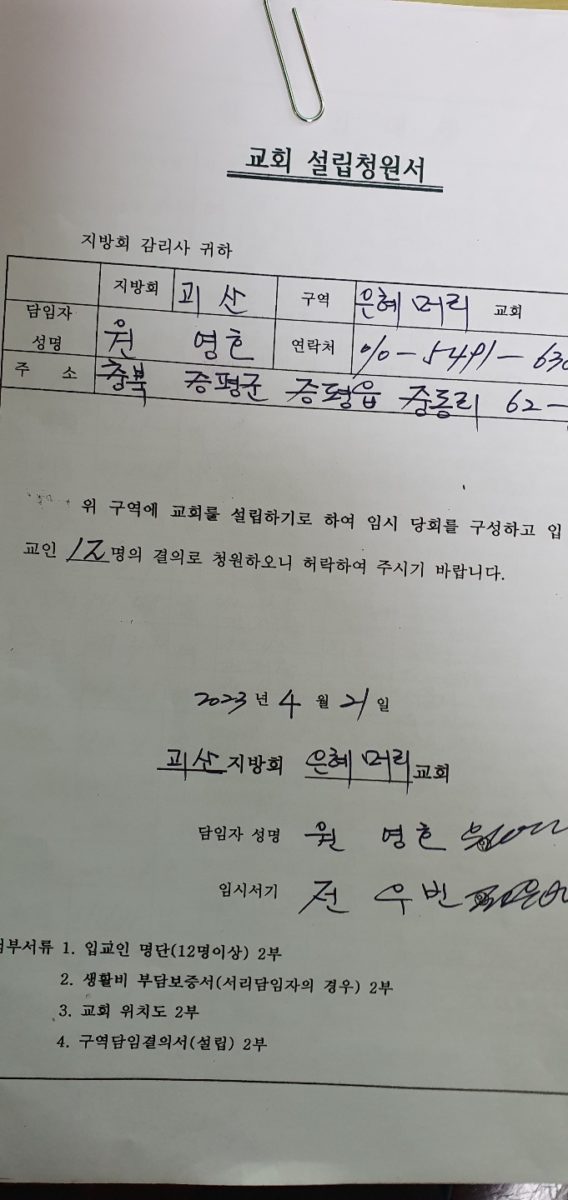 교회 설립청원서
지방회 감리사 귀하
지방회 괴산 구역 은혜머리 교회
담임자 성명 원 영흔 연락처 010-5491-630
주 소 충북 증평군 증평읍 중동리 62-
위 구역에 교회를 설립하기로 하여 임시 당회를 구성하고 입
교인 12명의 결의로 청원하오니 허락하여 주시기 바랍니다.
2023년 4월 21일
괴산지방회 은혜머리교회
담임자 성명 원 영흔
임시서기 전 우빈
첨부서류 1. 입교인 명단(12명이상) 2부
2. 생활비 부담보증서(서리담임자의 경우) 2부
3. 교회 위치도 2부
4. 구역담임결의서(설립) 2부